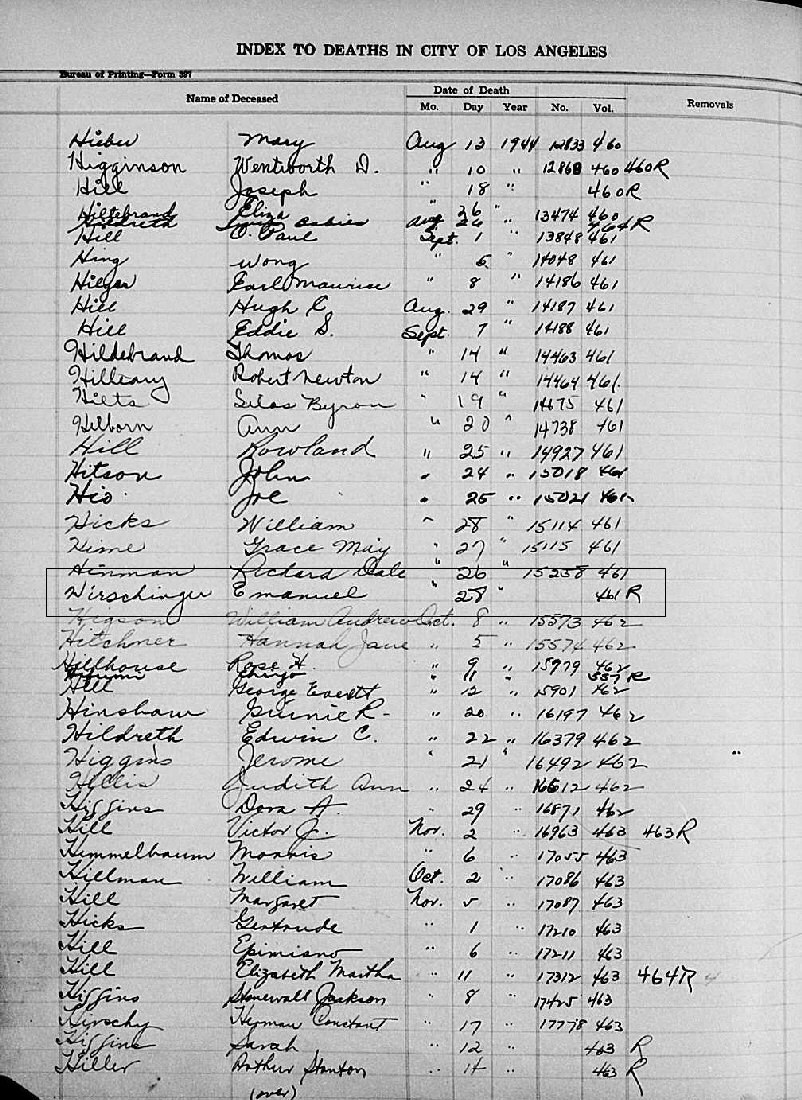 INDEX TO DEATHS IN CITY OF LOS ANGELES
Bureau of Printing—Form 397
Name of Deceased Date of Death No. Vol. Removals
Mo. Day Year
Hieber Mary Aug 13 1944 12833 460
Higginson Wentworth D. " 10 " 12868 460 460R
Hill Joseph " 18 " 460R
Hillebrand Eliza " 26 " 13474 460
Hildreth Aug 26 " 464R
Hill O. Paul Sept. 1 " 13848 461
Hing Wong " 6 " 14048 461
Hilger Earl Maurice " 8 " 14186 461
Hill Hugh C Aug. 29 " 14187 461
Hill Eddie S. Sept. 7 " 14188 461
Hildebrand Thomas " 14 " 14463 461
Hilleary Robert Newton " 14 " 14464 461.
Hilts Silas Byron " 19 " 14675 461
Hilborn Ann " 20 " 14738 461
Hill Rowland " 25 " 14927 461
Hitson John " 24 " 15018 461
Hio Joe " 25 " 15021 461
Hicks William " 28 " 15114 461
Hime Grace May " 27 " 15115 461
Hinman Richard Dale " 26 " 15258 461
Hirschinger Emanuel " 28 " 461 R
Higson William Andrew Oct. 8 " 15573 462
Hitchner Hannah Jane " 5 " 15574 462
Hillhouse Rose H. " 9 " 15979 462
" 11 " 557 R
Hill George Everett " 12 " 15901 462
Hinshaw Binnie R. " 20 " 16197 462
Hildreth Edwin C. " 22 " 16379 462
Higgins Jerome " 21 16492 462 "
Hillis Judith Ann " 24 " 16612 462
Higgins Dora A. " 29 " 16871 462
Hill Victor Jr. Nov. 2 " 16963 463 463R
Himmelbaum Morris " 6 " 17055 463
Hillman William Oct. 2 " 17086 463
Hill Margaret Nov. 5 " 17087 463
Hicks Gertrude " 1 " 17210 463
Hill Epimisno " 6 " 17211 463
Hill Elizabeth Martha " 11 " 17312 463 464R
Higgins Stonewall Jackson " 8 " 17425 463
Hirschy Herman Constant " 17 " 17778 463
Higgins Sarah " 12 " 463 R
Hiller Arthur Stanton " 14 " 463 R
(over)